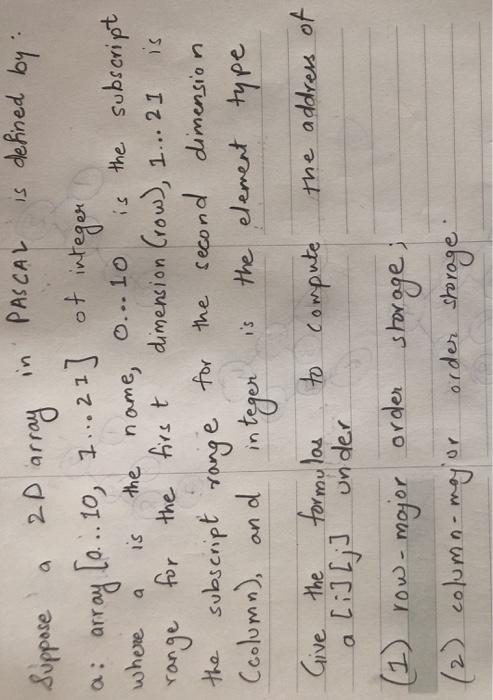 Suppose a 2D array in PASCAL is defined by:
a: array [0...10, 1...21] of integer
where a is the name, 0...10 is the subscript
range for the first dimension (row), 1...21 is
the subscript range for the second dimension
(column), and integer is the element type
Give the formulas to compute the address of
a [i][j] under
(1) row-major order storage;
(2) column-major order storage.